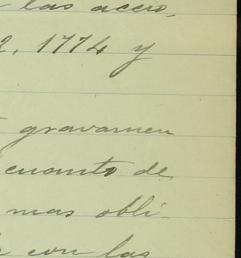 las accio,
2, 1774 y
gravamen
cuanto de
mas obli-
con las